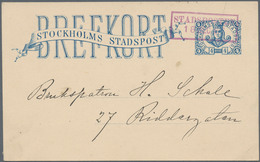 BREFKORT
STOCKHOLMS STADSPOST
Brukspatron H. Schale
27 Riddaregatan